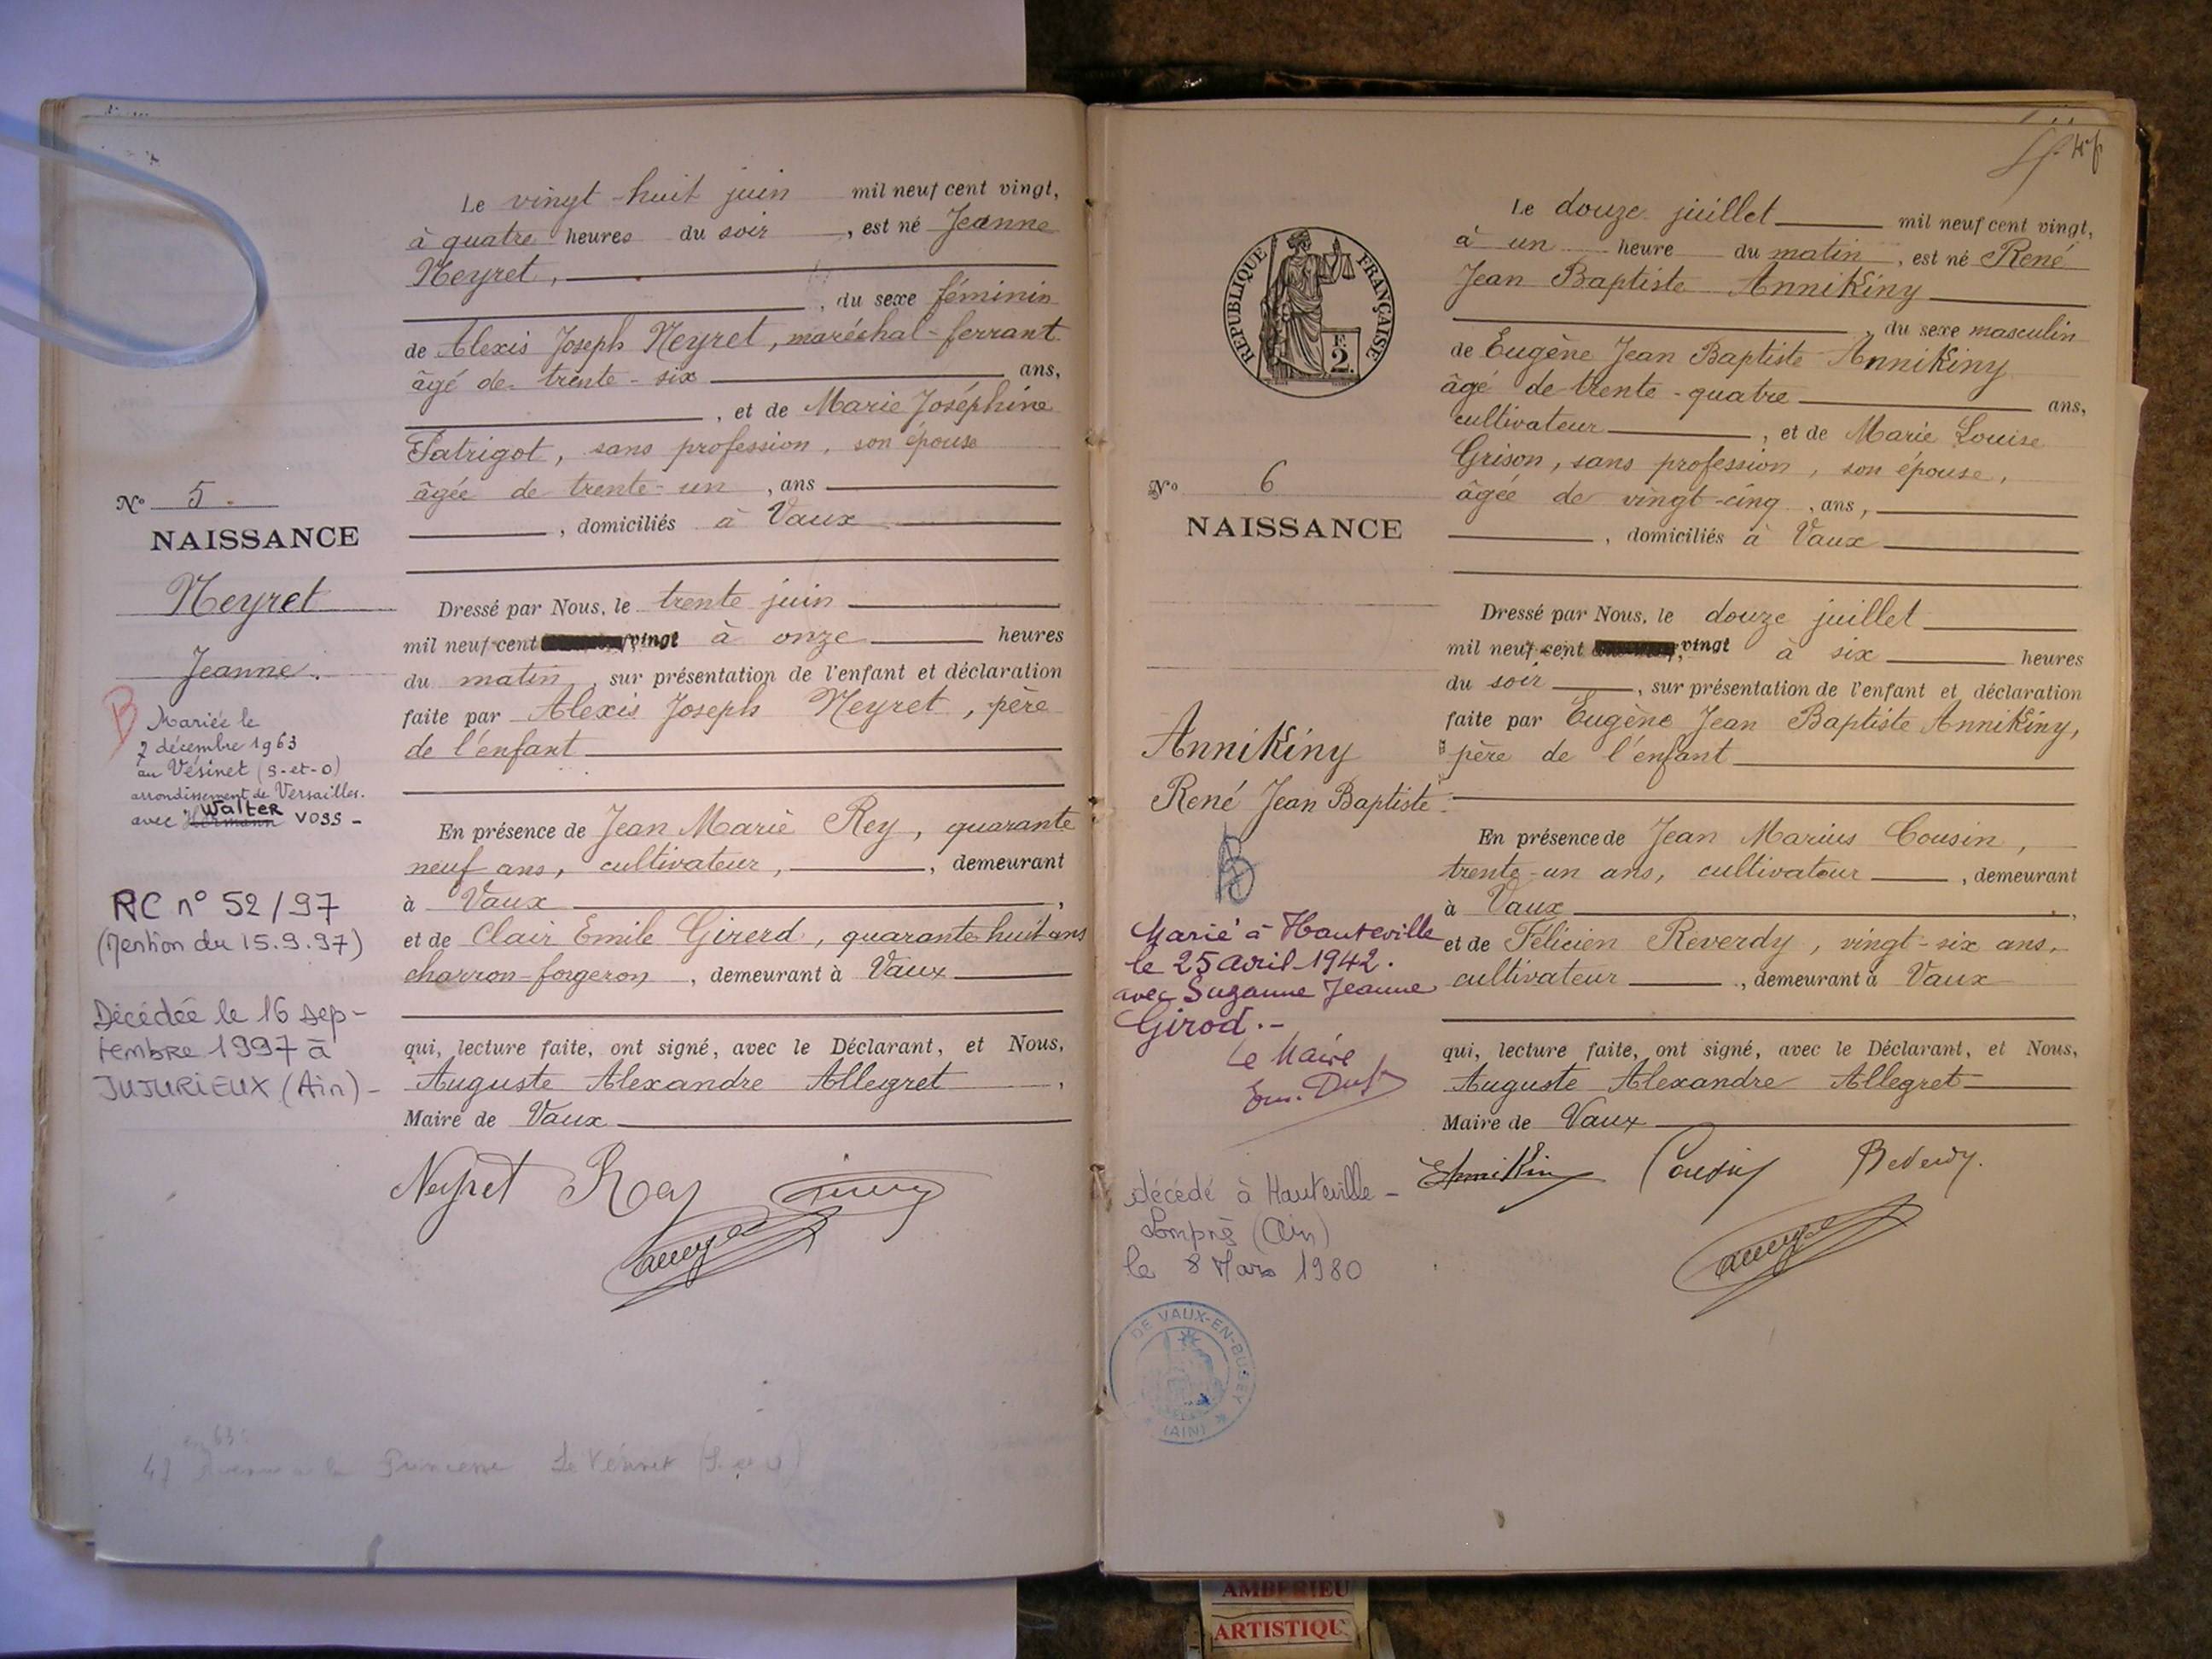 Le vingt-huit juin mil neuf cent vingt,
à quatre heures du soir, est né Jeanne
Neyret,
, du sexe féminin
de Alexis Joseph Neyret, maréchal-ferrant
âgé de trente-six ans,
, et de Marie Joséphine
Patrigot, sans profession, son épouse
âgée de trente-un, ans
, domiciliés à Vaux
Nº 5.
NAISSANCE
Neyret
Jeanne.
B
Mariée le
7 décembre 1963
au Vésinet (S-et-O)
arrondissement de Versailles.
Walter
avec Hermann VOSS -
RC nº 52/97
(Mention du 15.9.97)
Décédée le 16 sep-
tembre 1997 à
JUJURIEUX (Ain) -
Dressé par Nous, le trente juin
mil neuf cent vingt à onze heures
du matin, sur présentation de l'enfant et déclaration
faite par Alexis Joseph Neyret, père
de l'enfant
En présence de Jean Marie Rey, quarante
neuf ans, cultivateur, , demeurant
à Vaux,
et de Clair Emile Girerd, quarante-huit ans
charron-forgeron, demeurant à Vaux
qui, lecture faite, ont signé, avec le Déclarant, et Nous,
Auguste Alexandre Allegret,
Maire de Vaux
Neyret Rey
63
47 Avenue de la Princesse Le Vésinet (S. et O)
Le douze juillet mil neuf cent vingt,
à un heure du matin, est né René
Jean Baptiste Annikiny
, du sexe masculin
de Eugène Jean Baptiste Annikiny
âgé de trente-quatre ans,
cultivateur, et de Marie Louise
Grison, sans profession, son épouse,
âgée de vingt-cinq, ans,
, domiciliés à Vaux
RÉPUBLIQUE FRANÇAISE
F.
2.
Nº 6
NAISSANCE
Annikiny
René Jean Baptiste
Marié à Hauteville
le 25 avril 1942.
avec Suzanne Jeanne
Girod.-
Le Maire
décédé à Hauteville-
Lompnès (Ain)
le 8 Mars 1980
DE VAUX-EN-BUGEY
(AIN)
Dressé par Nous, le douze juillet
mil neuf cent vingt à six heures
du soir, sur présentation de l'enfant et déclaration
faite par Eugène Jean Baptiste Annikiny,
père de l'enfant
En présence de Jean Marius Cousin,
trente-un ans, cultivateur, demeurant
à Vaux,
et de Félicien Reverdy, vingt-six ans,
cultivateur, demeurant à Vaux
qui, lecture faite, ont signé, avec le Déclarant, et Nous,
Auguste Alexandre Allegret
Maire de Vaux
Annikiny Cousin Reverdy.
AMBERIEU
ARTISTIQU